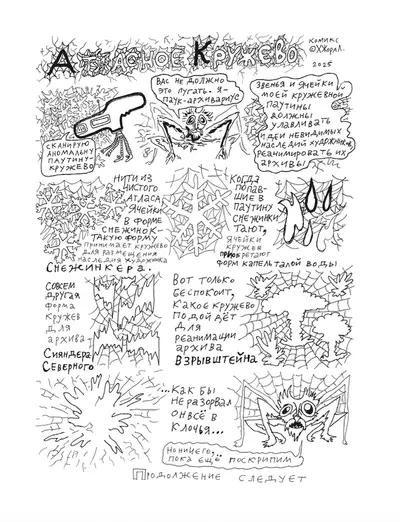 Атласное Кружево
комикс
©ХЖорал.
2025
Вас не должно
это пугать. Я-
паук-архивариус
Звенья и ячейки
моей кружевной
паутины
должны
улавливать
идеи невидимых
наследий художников,
реанимировать их
архивы
Сканирую
аномальну
паутину-
кружево
Нити из
чистого
атласа
Ячейки
в форме
снежинок-
такую форму
принимает кружево
для размещения
наследия художника
Снежинкера.
Когда
попав-
шие в
паутину
снежинки
тают,
ячейки
кружев
приобретают
форм капель талой воды
Совсем
другая
форма
кружев
для
архива
Сияндера
Северного
Вот только
беспокоит,
какое кружево
подойдёт
для
реанимации
архива
Взрывштейна
...как бы
не разорвал
он всё в
клочья...
Но ничего,
пока ещё поскрипим
Продолжение следует